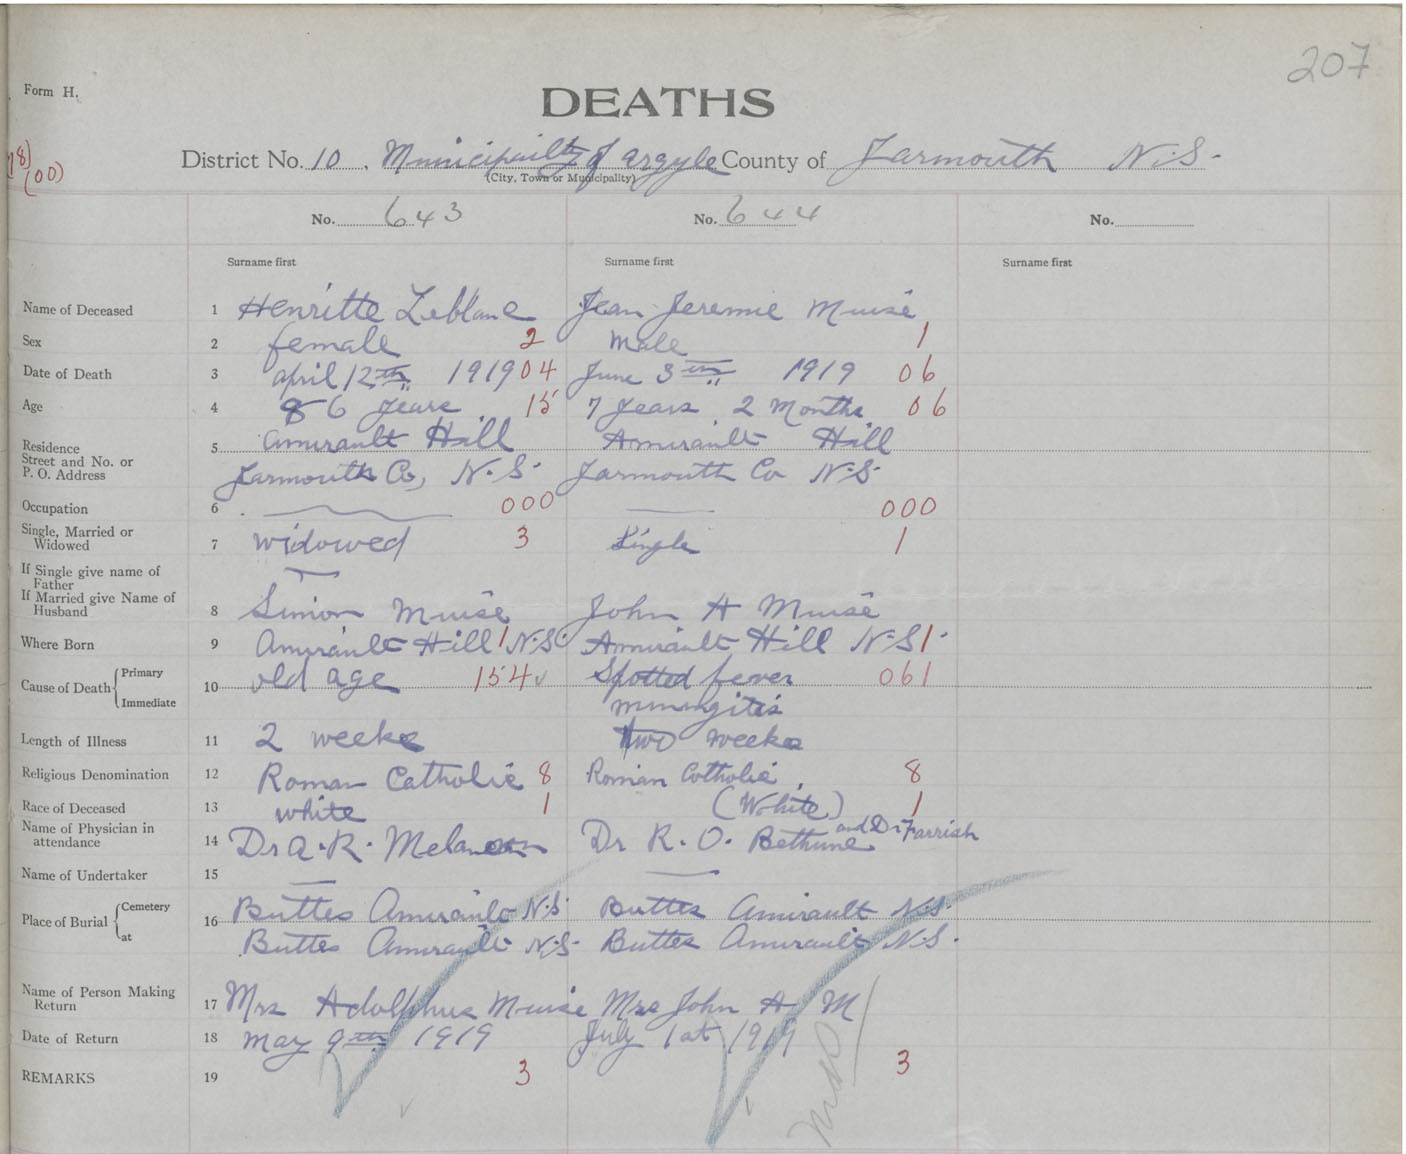 207
Form H.
DEATHS
18)
(00)
District No. 10, Municipailty of argyle County of Yarmouth N.S.
(City, Town or Municipality)
No. 643 No. 644 No.
Surname first Surname first Surname first
Name of Deceased 1 Henritte Leblanc Jean Jeremie Muise
Sex 2 female 2 Male 1
Date of Death 3 april 12th 1919 04 June 3th 1919 06
Age 4 86 years 15 7 years 2 Months 06
Residence 5 Amirault Hill Amirault Hill
Street and No. or
P. O. Address Yarmouth Co, N.S. Yarmouth Co N.S.
Occupation 6 000 000
Single, Married or
Widowed 7 widowed 3 Single 1
If Single give name of
Father
If Married give Name of
Husband 8 Simon Muise John A Muise
Where Born 9 Amirault Hill 1 N.S. Amirault Hill N.S 1
Cause of Death { Primary 10 old age 154 Spotted fever 061
Immediate miningitis
Length of Illness 11 2 weeks two weeks
Religious Denomination 12 Roman Catholic 8 Roman Catholic 8
Race of Deceased 13 white 1 (White) 1
Name of Physician in
attendance 14 Dr A. R. Melanson Dr R. O. Bethune and Dr Farrish
Name of Undertaker 15
Place of Burial { Cemetery 16 Buttes Amirault N.S. Buttes Amirault N.S.
at Buttes Amirault N.S. Buttes Amirault N.S.
Name of Person Making
Return 17 Mrs Adolphus Muise Mrs John A M
Date of Return 18 may 9th 1919 July 1st 1919
REMARKS 19 3 3